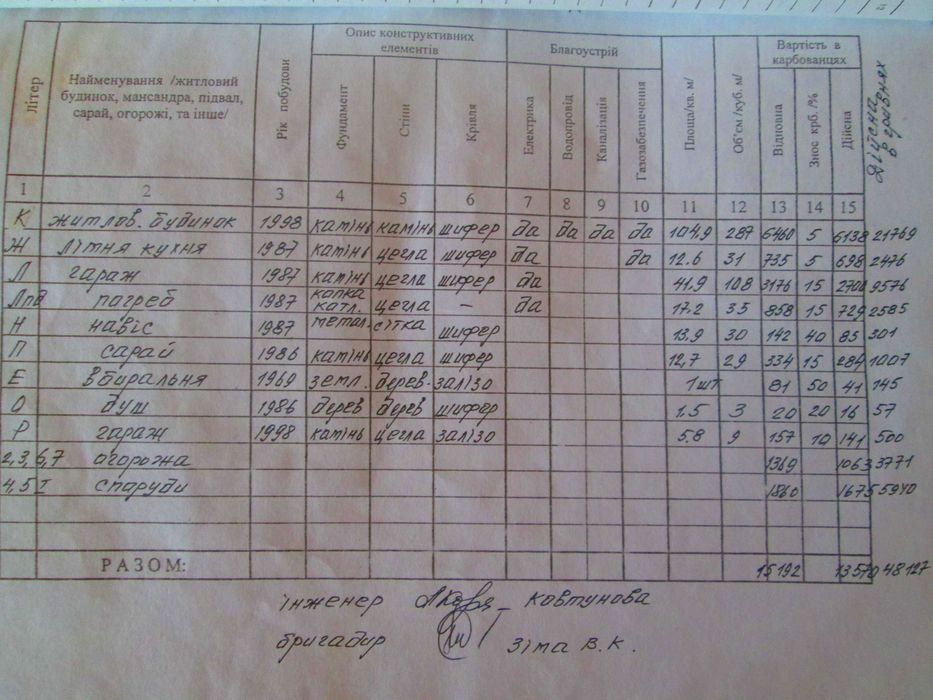 Літер
Найменування /житловий будинок, мансандра, підвал, сарай, огорожі, та інше/
Рік побудови
Опис конструктивних елементів
Фундамент
Стіни
Крівля
Благоустрій
Електрика
Водопровід
Каналізація
Газозабезпечення
Площа/кв. м/
Об'єм /куб. м/
Вартість в карбованцях
Відновна
Знос крб. /%
Дійсна
Дійсна в гривнях
1 2 3 4 5 6 7 8 9 10 11 12 13 14 15
К житлов. будинок 1998 камінь камінь шифер да да да да 104,9 287 6460 5 6138 21769
Ж літня кухня 1987 камінь цегла шифер да да 12.6 31 735 5 698 2476
Л гараж 1987 камінь цегла шифер да 41,9 108 3176 15 2700 9576
Лпд погреб 1987 копка катл. цегла – да 17.2 35 858 15 729 2585
Н навіс 1987 метал. сітка шифер 13,9 30 142 40 85 301
П сарай 1986 камінь цегла шифер 12,7 29 334 15 284 1007
Е вбиральня 1969 земл. дерев. залізо 1 шт 81 50 41 145
О душ 1986 дерев дерев шифер 1.5 3 20 20 16 57
Р гараж 1998 камінь цегла залізо 5.8 9 157 10 141 500
2,3,6,7 огорожа 1369 1063 3771
4,5 I споруди 1860 1675 5940
РАЗОМ: 15192 13570 48127
інженер Ковтунова
бригадир Зіма В.К.